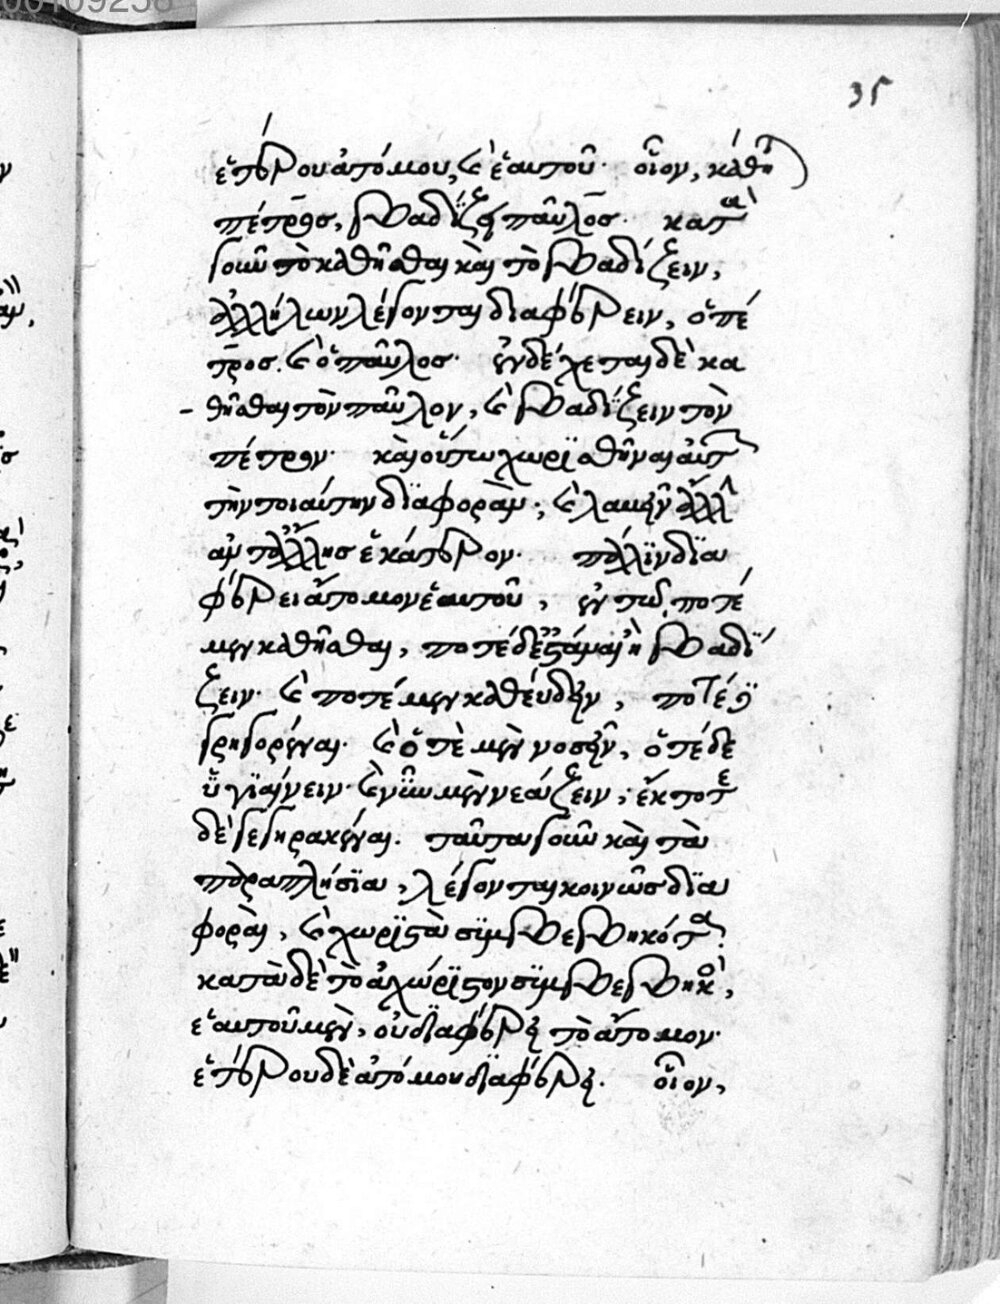 35
ἑτέρου ἀτόμου, καὶ ἑαυτοῦ· οἷον, κάθη
πέτρος, βαδίζει παῦλος· κατὰ
γοῦν τὸ καθῆσθαι καὶ τὸ βαδίζειν,
ἀλλήλων λέγονται διαφέρειν, ὅ πέ
τρος. καὶ ὁ παῦλος· ἐνδέχεται δὲ κα
θῆσθαι τὸν παῦλον, καὶ βαδίζειν τὸν
πέτρον· καὶ οὕτω χωρϊσθῆναι αὐτ
τὴν τοιαύτην διαφορὰν; καὶ λαβεῖν ἄλλ
αντ ἄλλης ἑκάτερον· πάλϊν δϊα
φέρει ἄτομον ἑαυτοῦ, ἐν τῶ, ποτέ
μεν καθῆσθαι, ποτέ δὲ ἵστασθαι ἢ βαδϊ
ζειν· καὶ ποτέ μεν καθεύδειν, ποτέ δὲ
γρηγορέναι· καὶ ὅτὲ μὲν νοσεῖν, ὅτέ δε
ὑγϊαίνειν· καὶ νῦν μὲν νεάζειν; ἔκποτε
δὲ γεγηρακέναι. ταῦτα γοῦν καὶ τὰ
παραπλήσϊα, λέγονται κοινῶς δϊα
φοραὶ, καὶ χωρϊστὰ σϊμβεβηκότα·
κατὰ δὲ τὸ ἀχώρϊστον σϊμβεβηκὸ,
ἑαυτοῦ μὲν, οὐ διαφέρει τὸ ἄτομον·
ἑτέρου δὲ ἀτόμου διαφέρει. οἷον,